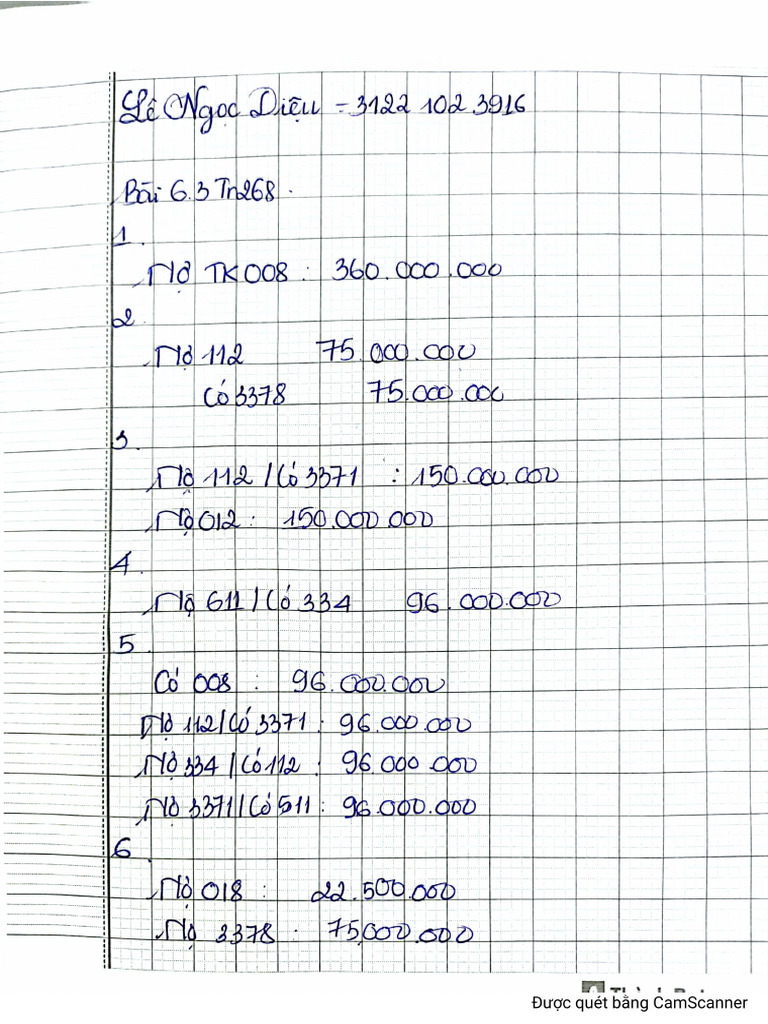 Lê Ngọc Diệu - 3122 102 3916
Bài 6.3 Tr268.
1.
Nợ TK 008 : 360.000.000
2.
Nợ 112 75.000.000
Có 3378 75.000.000
3.
Nợ 112 / Có 3371 : 150.000.000
Nợ 012 : 150.000.000
4.
Nợ 611 / Có 334 96.000.000
5.
Có 008 : 96.000.000
Nợ 112 / Có 3371 : 96.000.000
Nợ 334 / Có 112 : 96.000.000
Nợ 3371 / Có 511 : 96.000.000
6.
Nợ 018 : 22.500.000
Nợ 3378 : 75.000.000
Được quét bằng CamScanner